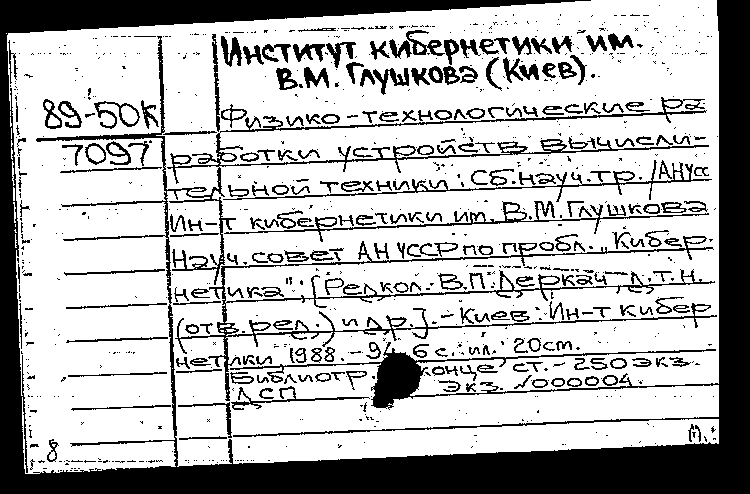 Институт кибернетики им.
В.М. Глушкова (Киев).
89-50К
7097
Физико-технологические ра
работки устройств вычисли-
тельной техники: Сб.науч.тр. / АН УССР
Ин-т кибернетики им. В.М. Глушкова
Науч. совет АН УССР по пробл. „Кибер-
нетика"; [Редкол. В.П. Деркач, д.т.н.
(отв. ред.) и др.]. - Киев: Ин-т кибер
нетики, 1988. - 94, 6 с. ил. 20см.
Библиогр конце ст. - 250 экз.
ДСП экз. №000004.
8